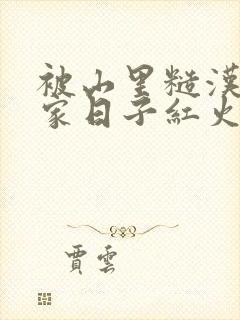 被山里糙漢
家日子紅火
賈雲